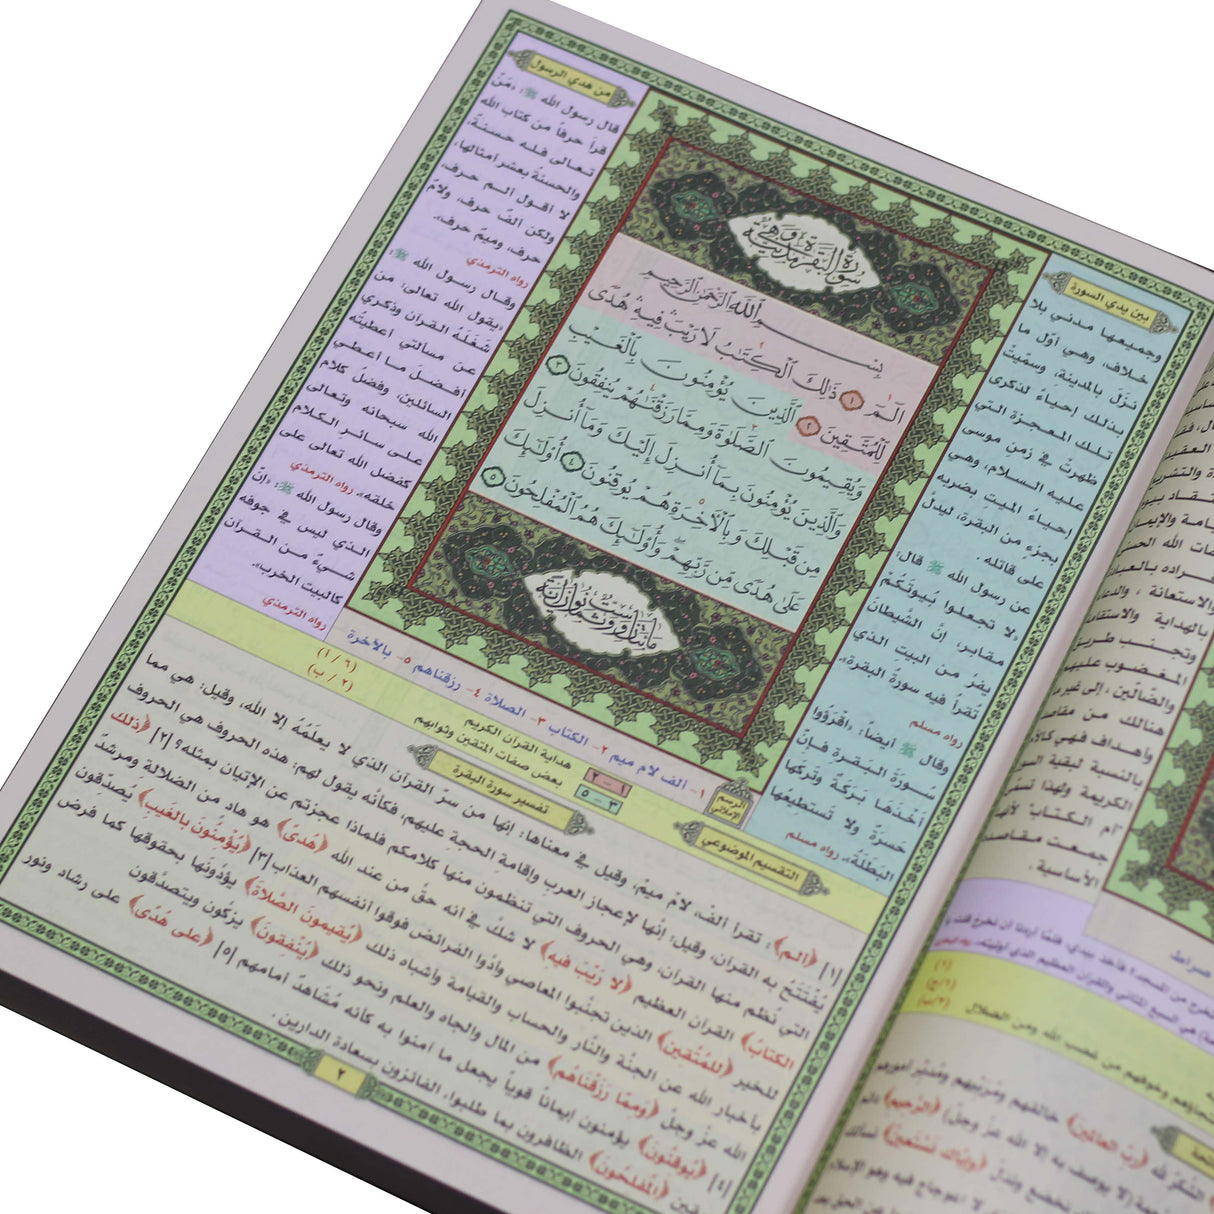 من هدي الرسول
قال رسول الله ﷺ: «مَنْ
قرأ حرفاً من كتاب الله
تعالى فله حسنةٌ،
والحسنةُ بعشر أمثالها،
لا أقول الم حرف،
ولكن ألفٌ حرف، ولامٌ
حرف، وميمٌ حرف».
رواه الترمذي
وقال رسول الله ﷺ:
«يقول الله تعالى: من
شَغَلَهُ القرآن وذكري
عن مسألتي أعطيتُه
أفضلَ ما أعطي
السائلين، وفضلُ كلام
الله سبحانه وتعالى
على سائر الكلام
كفضل الله تعالى على
خلقه». رواه الترمذي
وقال رسول الله ﷺ: «إنّ
الذي ليس في جوفه
شيءٌ من القرآن
كالبيت الخرب».
رواه الترمذي
سورة البقرة وهي مدنية
بِسْمِ ٱللَّهِ ٱلرَّحْمَٰنِ ٱلرَّحِيمِ
الٓمٓ ١ ذَٰلِكَ ٱلْكِتَٰبُ لَا رَيْبَ فِيهِ هُدًى
لِّلْمُتَّقِينَ ٢ ٱلَّذِينَ يُؤْمِنُونَ بِٱلْغَيْبِ
وَيُقِيمُونَ ٱلصَّلَوٰةَ وَمِمَّا رَزَقْنَٰهُمْ يُنفِقُونَ ٣
وَٱلَّذِينَ يُؤْمِنُونَ بِمَآ أُنزِلَ إِلَيْكَ وَمَآ أُنزِلَ
مِن قَبْلِكَ وَبِٱلْءَاخِرَةِ هُمْ يُوقِنُونَ ٤ أُو۟لَٰٓئِكَ
عَلَىٰ هُدًى مِّن رَّبِّهِمْ وَأُو۟لَٰٓئِكَ هُمُ ٱلْمُفْلِحُونَ ٥
مائتان وست وثمانون آية
بين يدي السورة
وجميعها مدني بلا
خلاف، وهي أوّل ما
نزَل بالمدينة، وسمّيتْ
بذلك إحياءً لذكرى
تلك المعجزة التي
ظهرتْ في زمن موسى
عليه السلام، وهي
إحياءُ الميتِ بضربه
بجزء من البقرة، ليدلَّ
على قاتله.
عن رسول الله ﷺ قال:
«لا تجعلوا بُيوتَكُمْ
مقابر، إنَّ الشَّيطانَ
يفرُ من البيت الذي
تُقرأُ فيه سورةُ البقرة».
رواه مسلم
وقال ﷺ أيضاً: «اقْرَؤوا
سُورَةَ البَقرة فإنَّ
أخْذَها بَرَكةٌ وتركَها
حَسرَةٌ ولا تَستطيعُها
البَطَلَةُ». رواه مسلم
الرسم الإملائي
١- ألف لام ميم ٢- الكتاب ٣- الصلاة ٤- رزقناهم ٥- بالآخرة
التقسيم الموضوعي
١ - ٢ هداية القرآن الكريم (٦ / ١)
٣ - ٥ بعض صفات المتقين وثوابهم (٢ / ب)
تفسير سورة البقرة
[١] ﴿الم﴾: تقرأ ألف، لام، ميم، وقيل في معناها: إنها من سرّ القرآن الذي لا يعلَمُهُ إلا الله، وقيل: هي مما
يُفْتَتَحُ به القرآن، وقيل: إنّها لإعجاز العرب وإقامة الحجة عليهم، فكأنه يقول لهم: هذه الحروف هي الحروف
التي نُظِم منها القرآن، وهي الحروف التي تنظمون منها كلامكم فلماذا عجزتم عن الإتيان بمثله؟ [٢] ﴿ذلك
الكتابُ﴾ القرآن العظيم ﴿لا رَيْبَ فيه﴾ لا شكَّ في أنه حقٌ من عند الله ﴿هُدىً﴾ هو هاد من الضلالة ومرشدٌ
للخير ﴿للمُتَّقين﴾ الذين تجنّبوا المعاصي وأدّوا الفرائض فوقوا أنفسهم العذاب [٣] ﴿يُؤْمِنُونَ بالغَيبِ﴾ يُصدّقون
بأخبار الله عن الجنّة والنَّار والحساب والقيامة وأشباه ذلك ﴿يُقيمونَ الصَّلاةَ﴾ يؤدّونها بحقوقها كما فَرض
الله عزَّ وجلَّ ﴿ومِمّا رَزَقْناهُم﴾ من المال والجاه والعلم ونحو ذلك ﴿يُنْفِقونَ﴾ يزكّون ويتصدّقون
[٤] ﴿يُوقِنُونَ﴾ يؤمنون إيماناً قوياً يجعل ما آمنوا به كأنه مُشَاهَدٌ أمامهم [٥] ﴿على هُدًى﴾ على رشاد ونور
ويقين ﴿المُفْلِحُونَ﴾ الظافرون بما طلبوا، الفائزون بسعادة الدارين.
٢